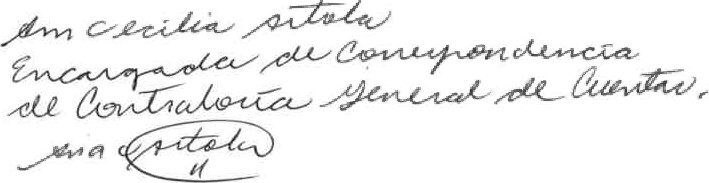 Ana Cecilia Artola
Encargada de Correspondencia
de Contraloría General de Cuentas.
Ana C Artola